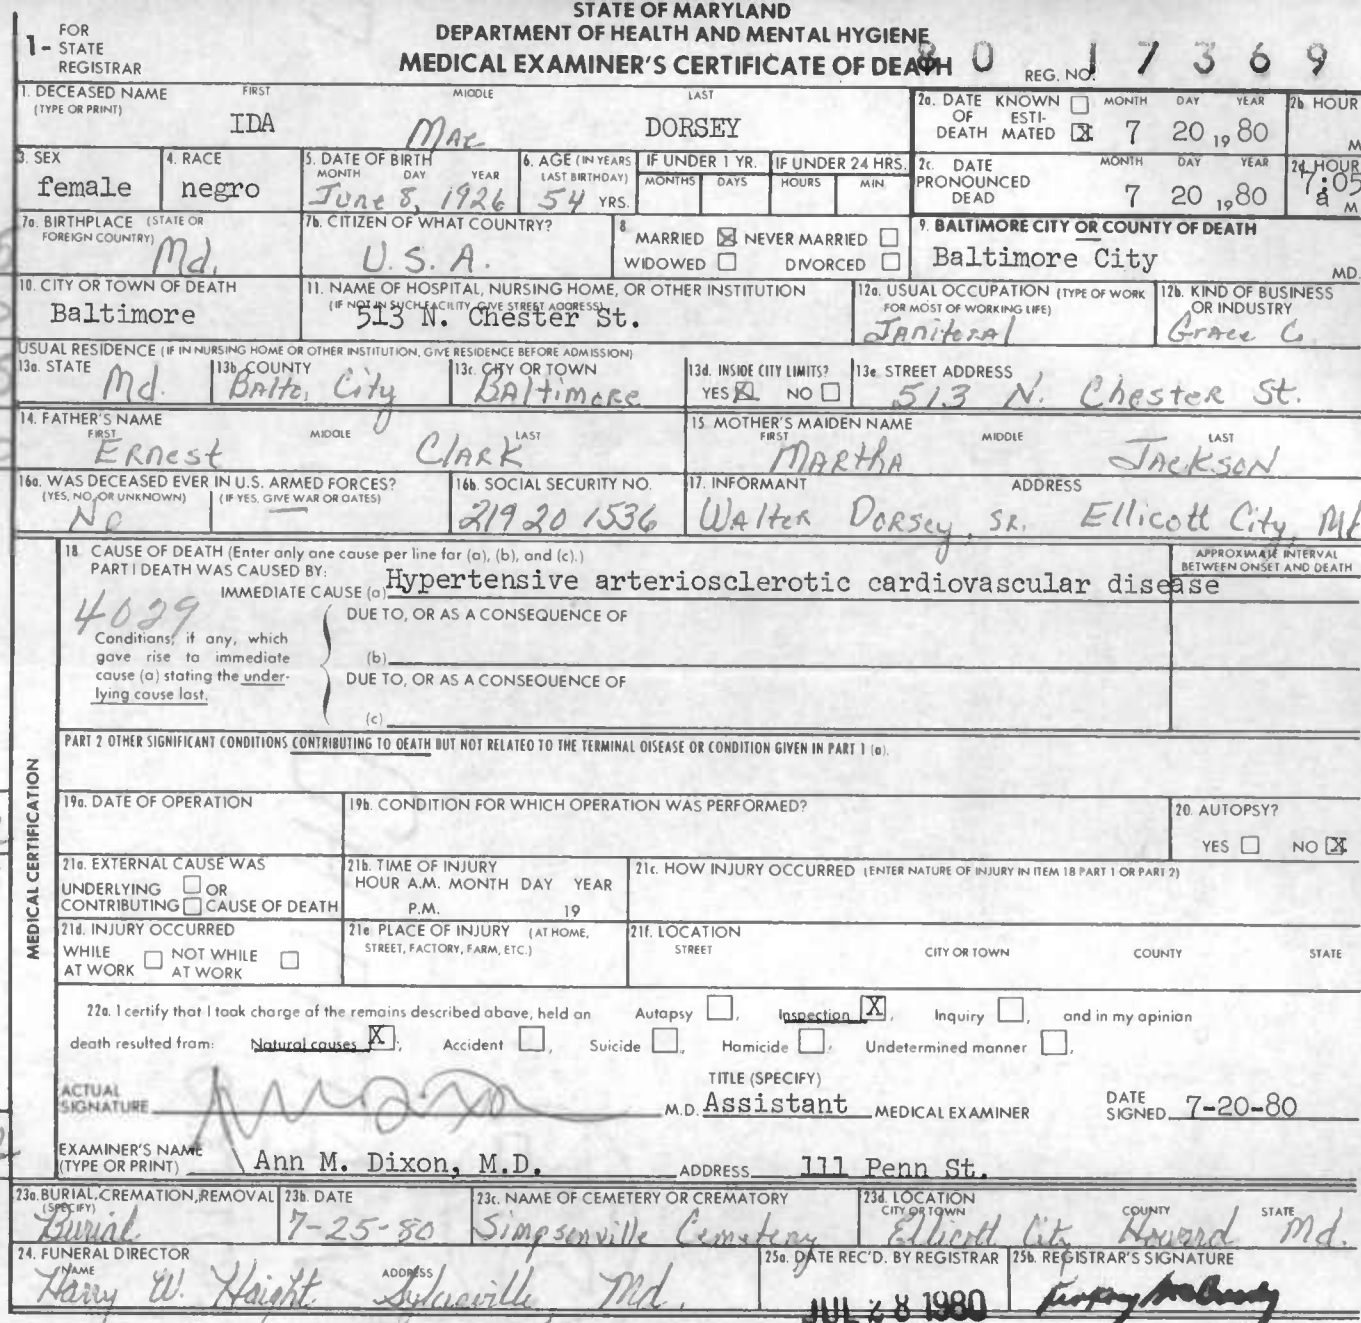 STATE OF MARYLAND
DEPARTMENT OF HEALTH AND MENTAL HYGIENE
MEDICAL EXAMINER'S CERTIFICATE OF DEATH
1- FOR STATE REGISTRAR
REG. NO. 80 17369
1. DECEASED NAME (TYPE OR PRINT) FIRST MIDDLE LAST
IDA Mae DORSEY
2a. DATE OF DEATH KNOWN ☐ ESTIMATED ☒ MONTH DAY YEAR
7 20 1980
2b HOUR M
3. SEX
female
4. RACE
negro
5. DATE OF BIRTH MONTH DAY YEAR
June 8, 1926
6. AGE (IN YEARS LAST BIRTHDAY)
54 YRS.
IF UNDER 1 YR. MONTHS DAYS
IF UNDER 24 HRS. HOURS MIN
2c. DATE PRONOUNCED DEAD MONTH DAY YEAR
7 20 1980
2d. HOUR
7:05 a M
7a. BIRTHPLACE (STATE OR FOREIGN COUNTRY)
Md.
7b. CITIZEN OF WHAT COUNTRY?
U.S.A.
8 MARRIED ☒ NEVER MARRIED ☐
WIDOWED ☐ DIVORCED ☐
9. BALTIMORE CITY OR COUNTY OF DEATH
Baltimore City MD.
10. CITY OR TOWN OF DEATH
Baltimore
11. NAME OF HOSPITAL, NURSING HOME, OR OTHER INSTITUTION
(IF NOT IN SUCH FACILITY, GIVE STREET ADDRESS)
513 N. Chester St.
12a. USUAL OCCUPATION (TYPE OF WORK FOR MOST OF WORKING LIFE)
Janitoral
12b. KIND OF BUSINESS OR INDUSTRY
Grace Co
USUAL RESIDENCE (IF IN NURSING HOME OR OTHER INSTITUTION, GIVE RESIDENCE BEFORE ADMISSION)
13a. STATE
Md.
13b. COUNTY
Balto, City
13c. CITY OR TOWN
Baltimore
13d. INSIDE CITY LIMITS?
YES ☒ NO ☐
13e STREET ADDRESS
513 N. Chester St.
14. FATHER'S NAME FIRST MIDDLE LAST
Ernest Clark
15. MOTHER'S MAIDEN NAME FIRST MIDDLE LAST
Martha Jackson
16a. WAS DECEASED EVER IN U.S. ARMED FORCES?
(YES, NO, OR UNKNOWN) (IF YES, GIVE WAR OR DATES)
No —
16b. SOCIAL SECURITY NO.
219 20 1536
17. INFORMANT ADDRESS
Walter Dorsey, Sr. Ellicott City, Md
MEDICAL CERTIFICATION
18. CAUSE OF DEATH (Enter only one cause per line for (a), (b), and (c).)
APPROXIMATE INTERVAL BETWEEN ONSET AND DEATH
PART I DEATH WAS CAUSED BY:
IMMEDIATE CAUSE (a) Hypertensive arteriosclerotic cardiovascular disease
4029
DUE TO, OR AS A CONSEQUENCE OF
Conditions, if any, which gave rise to immediate cause (a) stating the underlying cause last.
(b)
DUE TO, OR AS A CONSEQUENCE OF
(c)
PART 2 OTHER SIGNIFICANT CONDITIONS CONTRIBUTING TO DEATH BUT NOT RELATED TO THE TERMINAL DISEASE OR CONDITION GIVEN IN PART 1 (a).
19a. DATE OF OPERATION
19b. CONDITION FOR WHICH OPERATION WAS PERFORMED?
20. AUTOPSY?
YES ☐ NO ☒
21a. EXTERNAL CAUSE WAS
UNDERLYING ☐ OR
CONTRIBUTING ☐ CAUSE OF DEATH
21b. TIME OF INJURY
HOUR A.M. MONTH DAY YEAR
P.M. 19
21c. HOW INJURY OCCURRED (ENTER NATURE OF INJURY IN ITEM 18 PART 1 OR PART 2)
21d. INJURY OCCURRED
WHILE AT WORK ☐ NOT WHILE AT WORK ☐
21e PLACE OF INJURY (AT HOME, STREET, FACTORY, FARM, ETC.)
21f. LOCATION
STREET CITY OR TOWN COUNTY STATE
22a. I certify that I took charge of the remains described above, held an Autopsy ☐, Inspection ☒, Inquiry ☐, and in my opinion
death resulted from: Natural causes ☒, Accident ☐, Suicide ☐, Homicide ☐, Undetermined manner ☐,
ACTUAL SIGNATURE M.D.
TITLE (SPECIFY)
Assistant MEDICAL EXAMINER
DATE SIGNED 7-20-80
EXAMINER'S NAME (TYPE OR PRINT) Ann M. Dixon, M.D. ADDRESS 111 Penn St.
23a. BURIAL, CREMATION, REMOVAL (SPECIFY)
Burial
23b. DATE
7-25-80
23c. NAME OF CEMETERY OR CREMATORY
Simpsonville Cemetery
23d. LOCATION CITY OR TOWN COUNTY STATE
Ellicott City Howard Md.
24. FUNERAL DIRECTOR
NAME ADDRESS
Harry W. Haight Sykesville Md.
25a. DATE REC'D. BY REGISTRAR
JUL 28 1980
25b. REGISTRAR'S SIGNATURE